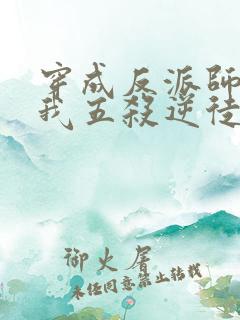 穿成反派師
我五殺逆徒
御火屠
未經同意禁止轉載